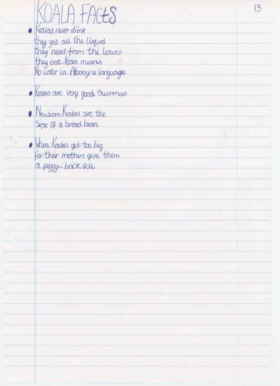 KOALA FACTS
13
Koalas never drink
they get all the liquid
they need from the leaves
they eat. Koala means
No water in Aboriginal language.
Koalas are very good Swimmers
Newborn Koalas are the
Size of a broad bean.
When Koalas get too big
for their mothers give them
a piggy-back ride.